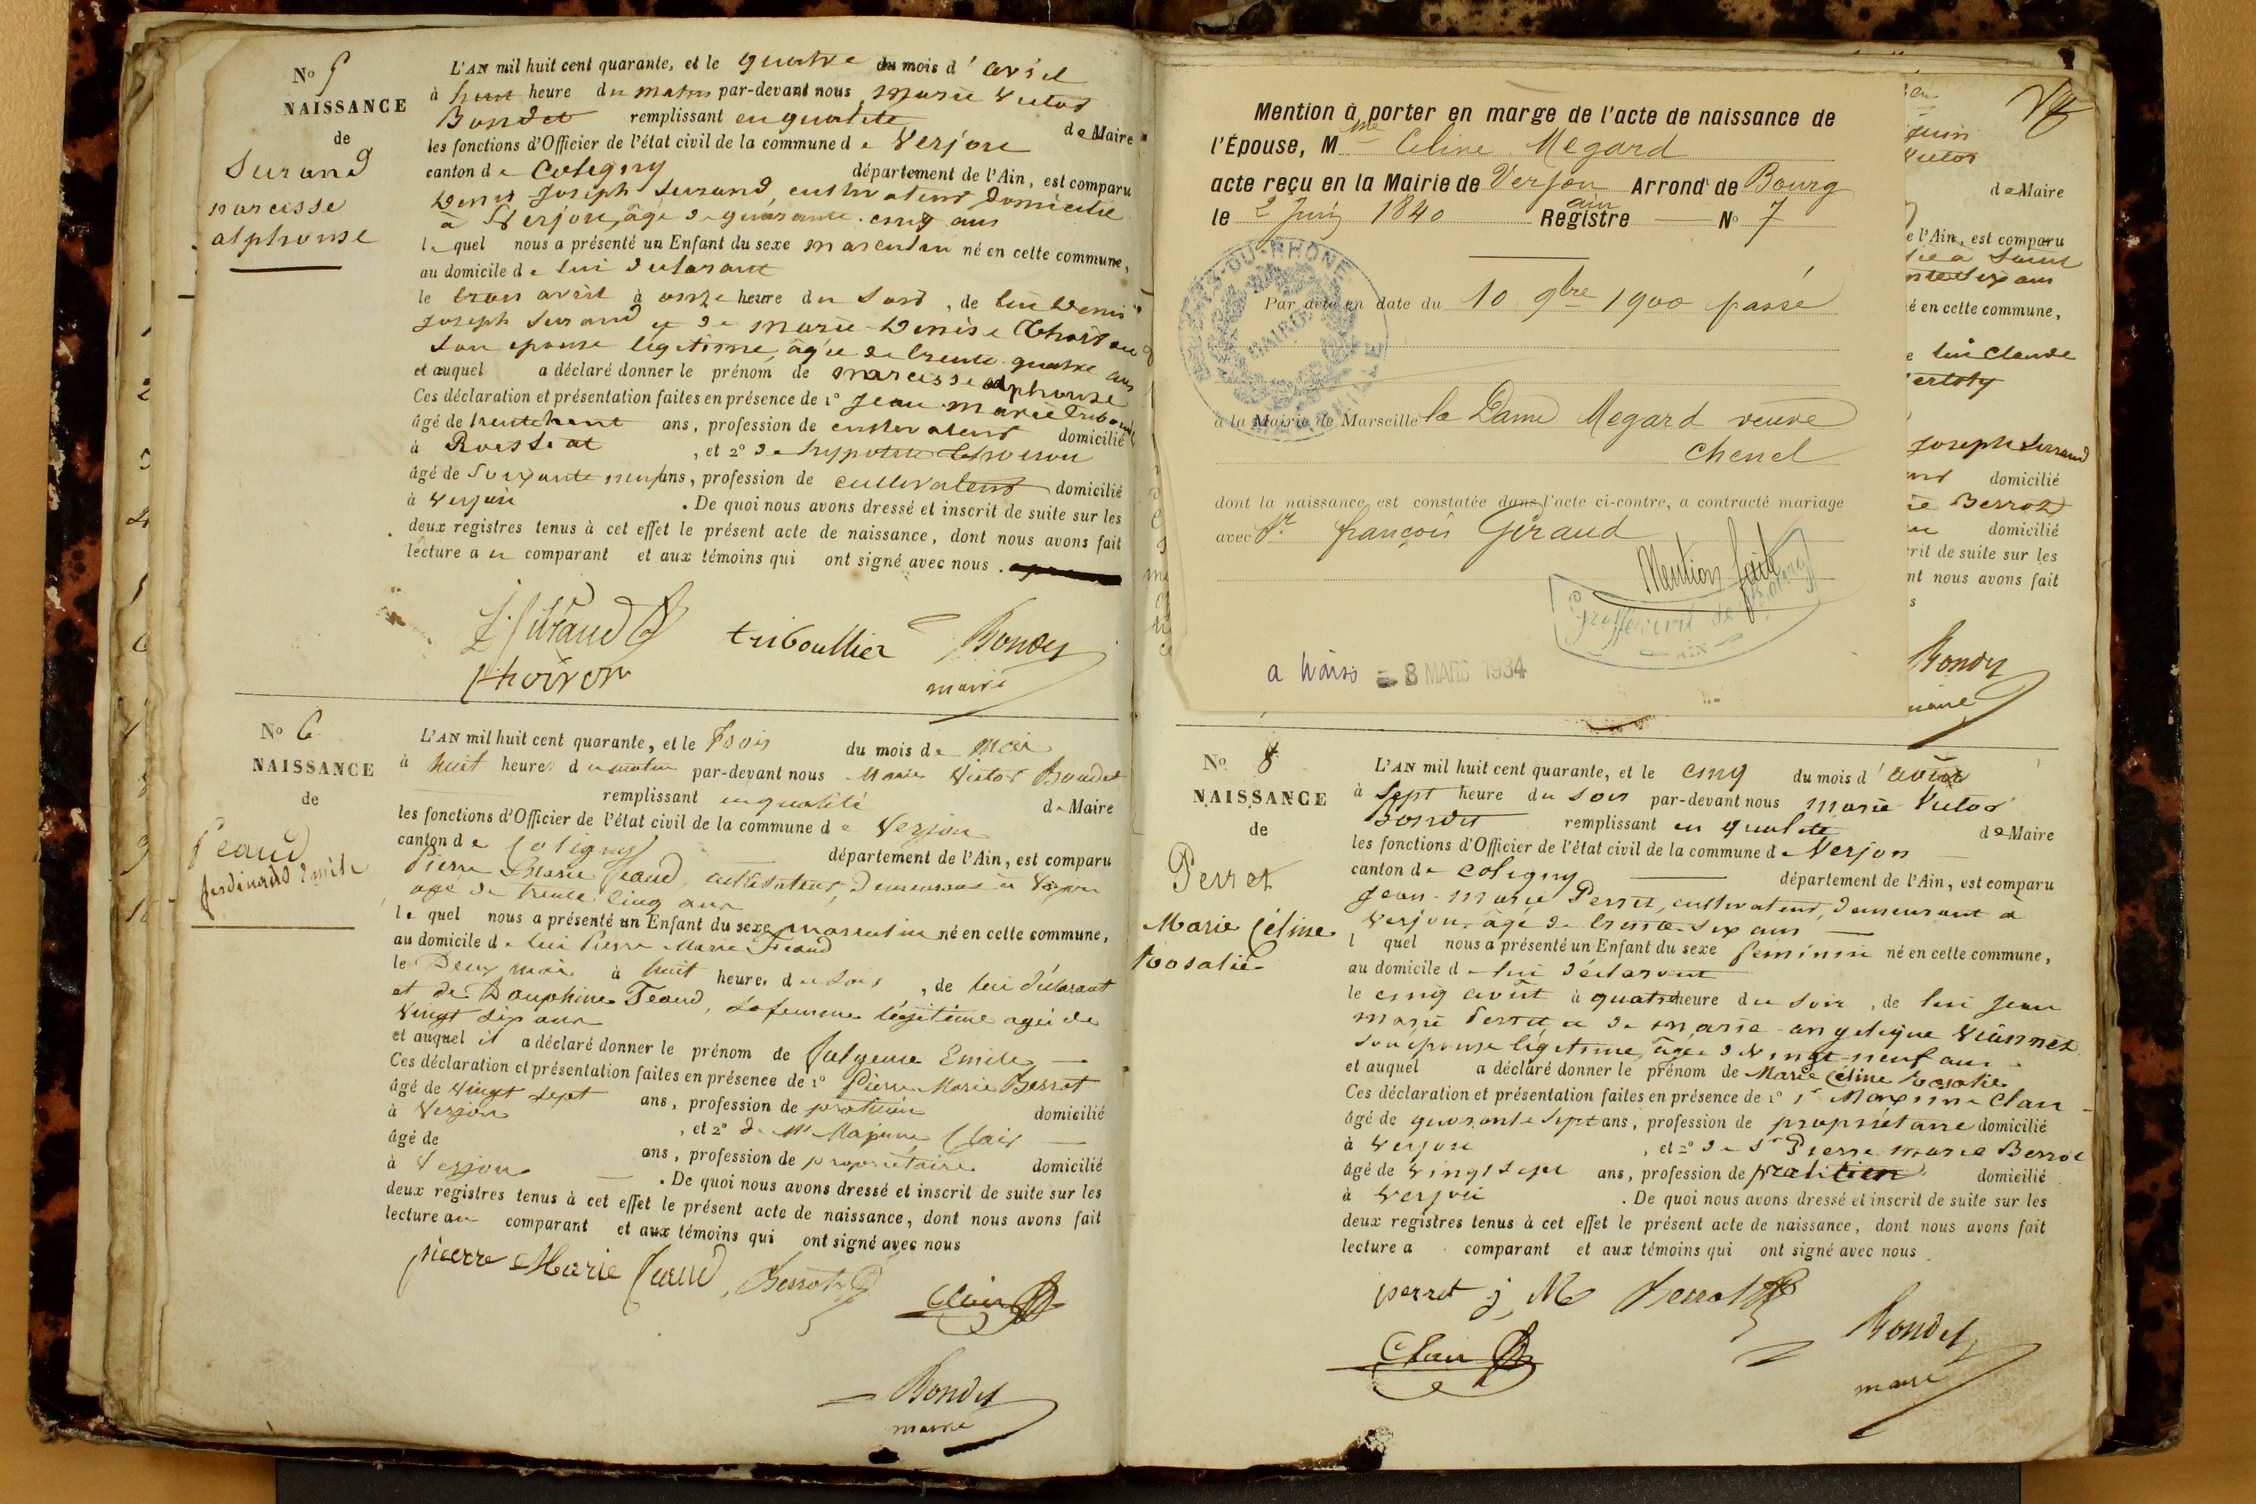 No 5
NAISSANCE
de
Surand
narcisse
alphonse
L'AN mil huit cent quarante, et le quatre du mois d'avril
à huit heure du matin par-devant nous Marie Victor
Bondet remplissant en qualité de Maire
les fonctions d'Officier de l'état civil de la commune de Verjon
canton de Coligny département de l'Ain, est comparu
Denis Joseph Surand, cultivateur domicilié
à Verjon, âgé de quarante cinq ans
lequel nous a présenté un Enfant du sexe masculin né en cette commune,
au domicile de lui déclarant
le trois avril à onze heure du soir, de lui Denis
Joseph Surand et de Marie Denise
son épouse légitime, âgée de trente quatre ans
et auquel a déclaré donner le prénom de narcisse alphonse
Ces déclaration et présentation faites en présence de 1° Jean Marie
âgé de ans, profession de cultivateur domicilié
à , et 2° de hypolite
âgé de soixante neuf ans, profession de cultivateur domicilié
à Verjon . De quoi nous avons dressé et inscrit de suite sur les
deux registres tenus à cet effet le présent acte de naissance, dont nous avons fait
lecture au comparant et aux témoins qui ont signé avec nous.
triboullier Bondet
thoiron maire
No 6
NAISSANCE
de
Feaud
ferdinand Emile
L'AN mil huit cent quarante, et le trois du mois de Mai
à huit heures du matin par-devant nous Marie Victor Bondet
remplissant en qualité de Maire
les fonctions d'Officier de l'état civil de la commune de Verjon
canton de Coligny département de l'Ain, est comparu
Pierre Marie Feaud, cultivateur, demeurant à Verjon
âgé de trente cinq ans
lequel nous a présenté un Enfant du sexe masculin né en cette commune,
au domicile de lui Pierre Marie Feaud
le Deux mai à huit heures du soir, de lui déclarant
et de Dauphine Feaud, sa femme légitime agée de
vingt six ans
et auquel il a déclaré donner le prénom de Emile
Ces déclaration et présentation faites en présence de 1° Pierre Marie Berrot
âgé de vingt sept ans, profession de praticien domicilié
à Verjon , et 2° de Mr Clair
âgé de ans, profession de propriétaire domicilié
à Verjon . De quoi nous avons dressé et inscrit de suite sur les
deux registres tenus à cet effet le présent acte de naissance, dont nous avons fait
lecture au comparant et aux témoins qui ont signé avec nous
pierre Marie Feaud Berrot
Clair
Bondet
maire
Mention à porter en marge de l'acte de naissance de
l'Épouse, Mme Celine Megard
acte reçu en la Mairie de Verjon Arrondt de Bourg
ain
le 2 Juin 1840 Registre No 7
BOUCHES-DU-RHÔNE
MAIRIE
MARSEILLE
Par acte en date du 10 9bre 1900 passé
à la Mairie de Marseille la Dame Megard veuve
Chenel
dont la naissance est constatée dans l'acte ci-contre, a contracté mariage
avec Sr françois Giraud
Mention faite
Greffe civil de Bourg
AIN
8 MARS 1934
juin
Victor
de Maire
e l'Ain, est comparu
é en cette commune,
lui Claude
Joseph Surand
domicilié
Berrot
domicilié
rit de suite sur les
nt nous avons fait
Bondet
maire
No 8
NAISSANCE
de
Perret
Marie Céline
Rosalie
L'AN mil huit cent quarante, et le cinq du mois d'août
à sept heure du soir par-devant nous Marie Victor
Bondet remplissant en qualité de Maire
les fonctions d'Officier de l'état civil de la commune de Verjon
canton de Coligny département de l'Ain, est comparu
Jean-Marie Perret, cultivateur, demeurant à
Verjon, âgé de trente six ans
l quel nous a présenté un Enfant du sexe féminin né en cette commune,
au domicile de lui déclarant
le cinq août à quatre heure du soir, de lui Jean
Marie Perret et de Marie angelique Viannet
son épouse légitime, âgée de vingt-neuf ans
et auquel a déclaré donner le prénom de Marie Céline Rosalie
Ces déclaration et présentation faites en présence de 1° Sr Clair
âgé de quarante sept ans, profession de propriétaire domicilié
à Verjon , et 2° de Sr Pierre Marie Berrot
âgé de vingt sept ans, profession de praticien domicilié
à Verjon . De quoi nous avons dressé et inscrit de suite sur les
deux registres tenus à cet effet le présent acte de naissance, dont nous avons fait
lecture a comparant et aux témoins qui ont signé avec nous
perret j, M Berrot
Clair Bondet
maire